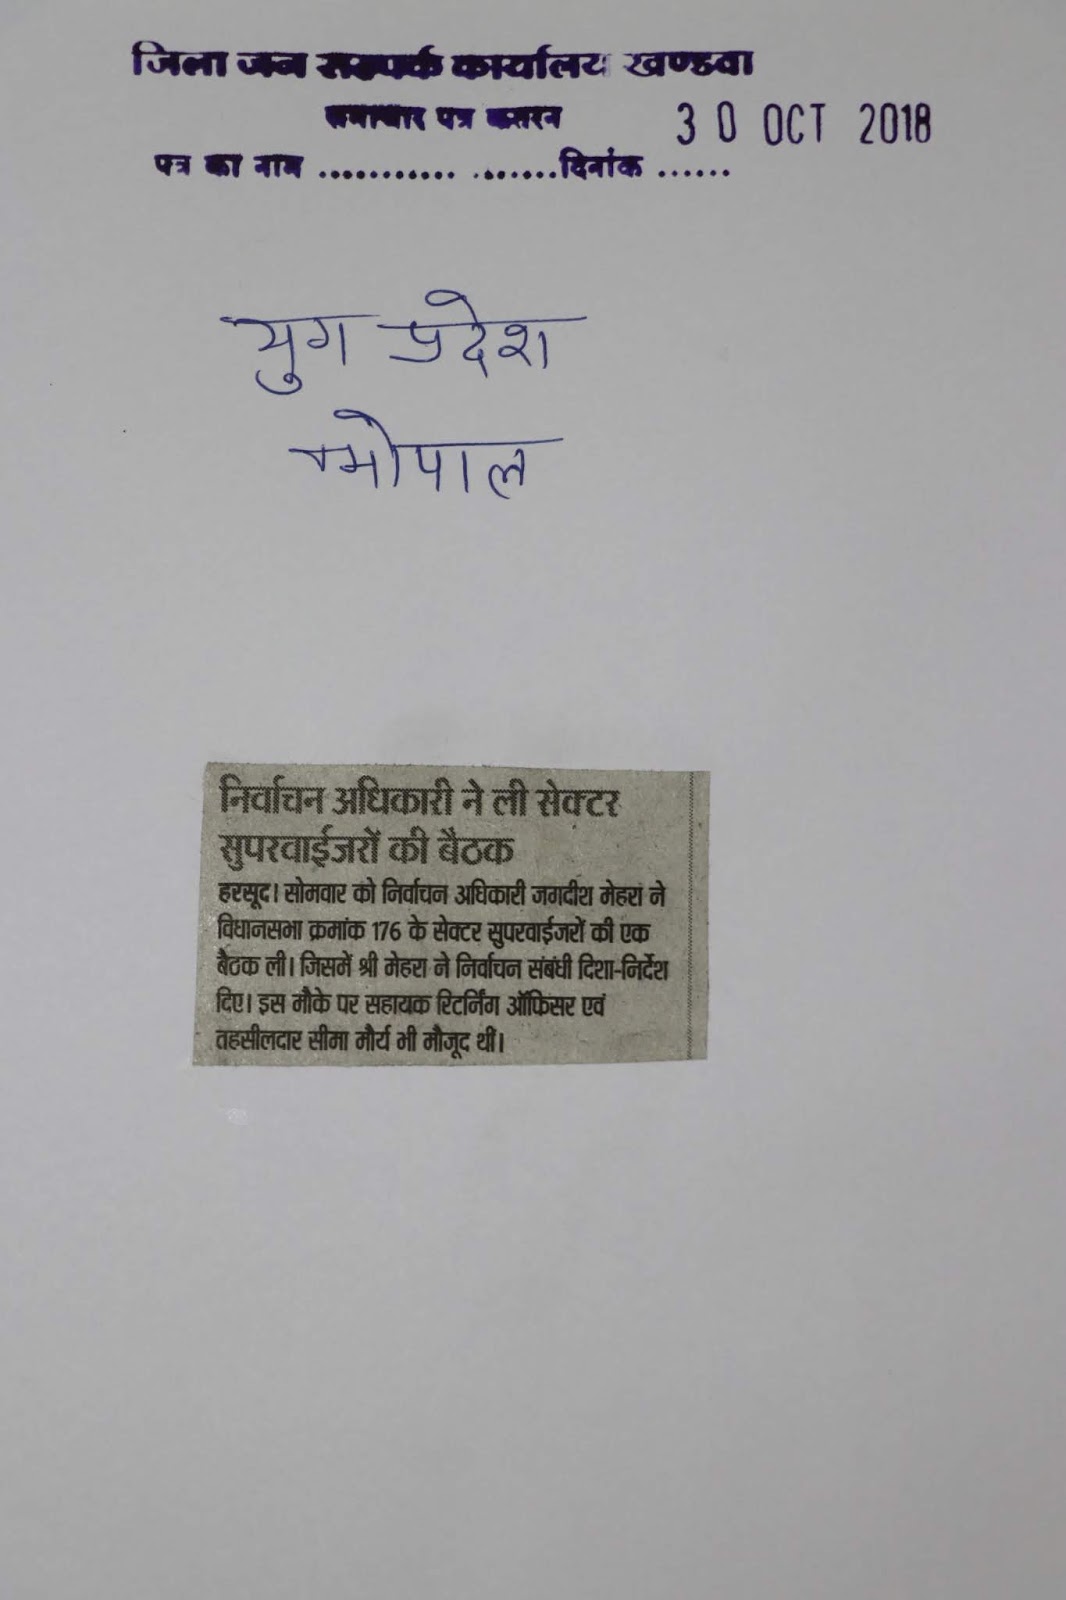 जिला जन सम्पर्क कार्यालय खण्डवा
समाचार पत्र कतरन 30 OCT 2018
पत्र का नाम .................. दिनांक ......
युग प्रदेश
भोपाल
निर्वाचन अधिकारी ने ली सेक्टर
सुपरवाईजरों की बैठक
हरसूद। सोमवार को निर्वाचन अधिकारी जगदीश मेहरा ने
विधानसभा क्रमांक 176 के सेक्टर सुपरवाईजरों की एक
बैठक ली। जिसमें श्री मेहरा ने निर्वाचन संबंधी दिशा-निर्देश
दिए। इस मौके पर सहायक रिटर्निंग ऑफिसर एवं
तहसीलदार सीमा मौर्य भी मौजूद थीं।